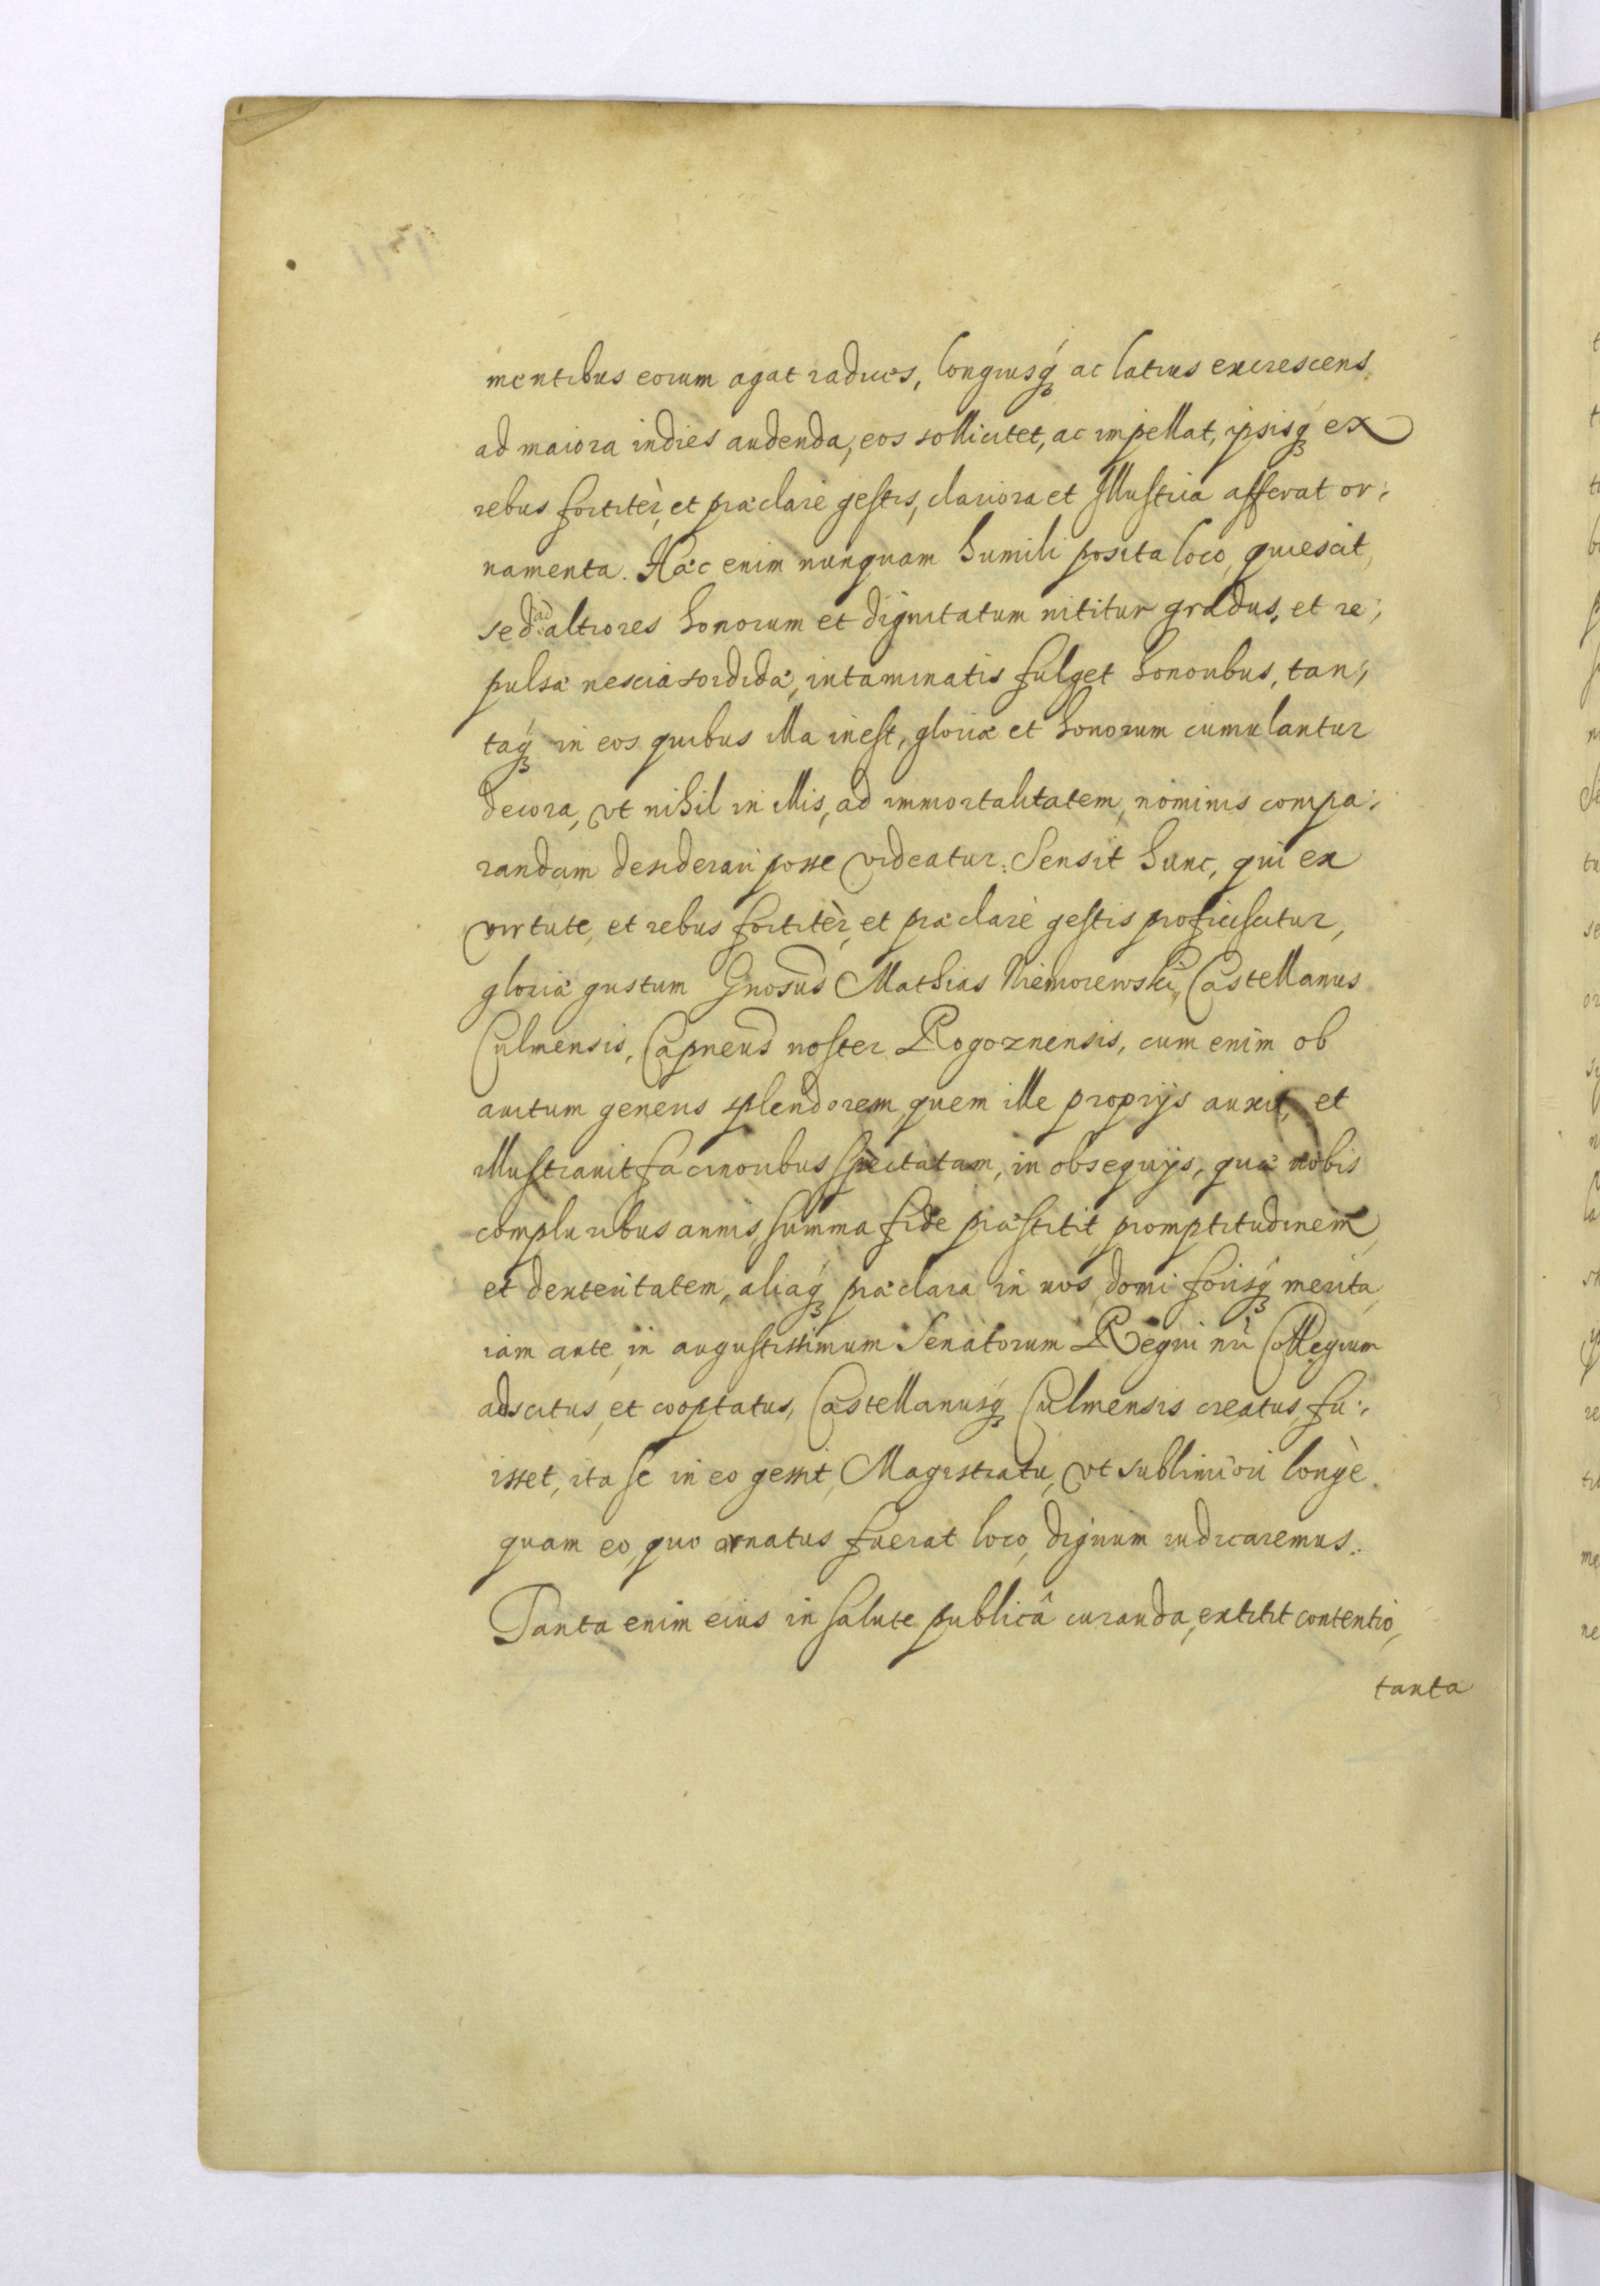 mentibus eorum agat radices, longiusq́ꝫ ac latius excrescens
ad maiora indies audenda, eos sollicitet, ac impellat, ipsisq́ꝫ ex
rebus fortitèr, et præclarè gestis, clariora et Illustria afferat or:
namenta. Hæc enim nunquam humili posita loco, quiescit,
sed ad altiores honorum et dignitatum nititur gradus, et re:
pulsæ nescia sordidæ, intaminatis fulget honoribus, tan:
taq́ꝫ in eos quibus illa inest, gloriæ et honorum cumulantur
decora, vt nihil in illis, ad immortalitatem, nominis compa:
randam desiderari posse videatur. Sensit hunc, qui ex
virtute, et rebus fortitèr, et præclarè gestis proficiscitur,
gloriæ gustum Gnosus Mathias Niemoiewski, Castellanus
Culmensis, Capneus noster Rogoznensis, cum enim ob
auitum generis splendorem, quem ille proprijs auxit, et
illustrauit facinoribus spectatam, in obsequijs, quæ nobis
compluribus annis, summa fide præstitit, promptitudinem,
et dexteritatem, aliaq́ꝫ præclara in nos, domi forisq́ꝫ merita,
iam ante, in augustissimum Senatorum Regni nri Collegium
adscitus, et cooptatus, Castellanusq́ꝫ Culmensis creatus, fu:
isset, ita se in eo gessit, Magistratu, vt sublimiori longè
quam eo, quo ornatus fuerat loco, dignum iudicaremus.
Tanta enim eius in salute publicâ curanda, extitit contentio,
tanta